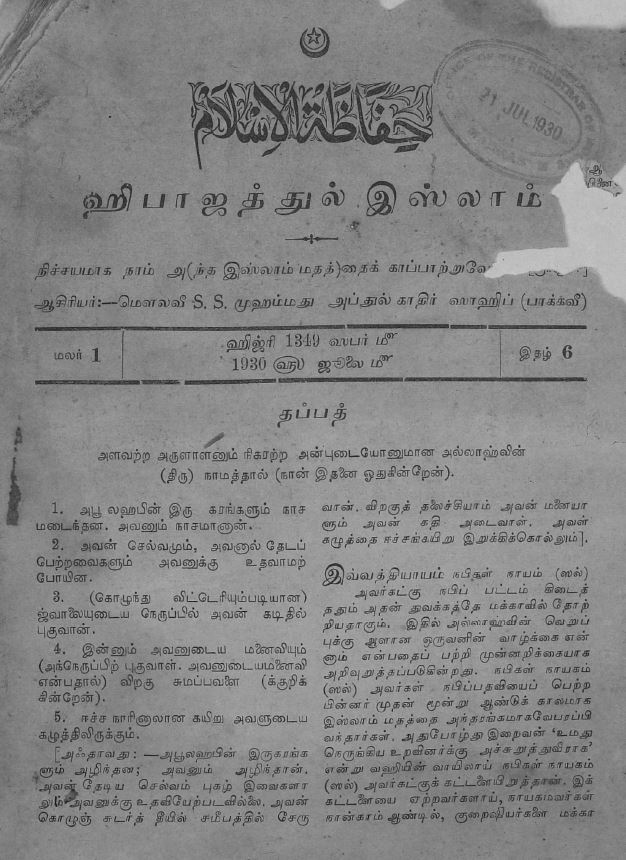 حفاظة الإسلام
OFFICE OF THE REGISTRAR OF
21 JUL 1930
ஹிபாஜத்துல் இஸ்லாம்
நிச்சயமாக நாம் அ(ந்த இஸ்லாம் மதத்)தைக் காப்பாற்றுவோ
ஆசிரியர்:—மௌலவீ S. S. முஹம்மது அப்துல் காதிர் ஸாஹிப் (பாக்கவீ)
மலர் 1
ஹிஜ்ரி 1349 ஸபர் மீ
1930 ௵ ஜூலை மீ
இதழ் 6
தப்பத்
அளவற்ற அருளாளனும் நிகரற்ற அன்புடையோனுமான அல்லாஹ்வின்
(திரு) நாமத்தால் (நான் இதனை ஓதுகின்றேன்).
1. அபூ லஹபின் இரு கரங்களும் நாச
மடைந்தன. அவனும் நாசமானான்.
2. அவன் செல்வமும், அவனால் தேடப்
பெற்றவைகளும் அவனுக்கு உதவாமற்
போயின.
3. (கொழுந்து விட்டெரியும்படியான)
ஜ்வாலையுடைய நெருப்பில் அவன் கடிதில்
புகுவான்.
4. இன்னும் அவனுடைய மனைவியும்
(அந்நெருப்பிற் புகுவாள். அவனுடையமனைவி
என்பதால்) விறகு சுமப்பவளை (க்குறிக்
கின்றேன்).
5. ஈச்ச நாரினாலான கயிறு அவளுடைய
கழுத்திலிருக்கும்.
[அஃதாவது:—அபூலஹபின் இருகரங்க
ளும் அழிந்தன; அவனும் அழிந்தான்.
அவன் தேடிய செல்வம் புகழ் இவைகளா
லும் அவனுக்கு உதவியேற்படவில்லை. அவன்
கொழுஞ் சுடர்த் தீயில் சமீபத்தில் சேரு
வான். விறகுத் தலைச்சியாம் அவன் மனையா
ளும் அவன் கதி அடைவாள். அவள்
கழுத்தை ஈச்சங்கயிறு இறுக்கிக்கொல்லும்].
இவ்வத்தியாயம் நபிகள் நாயம் (ஸல்)
அவர்கட்கு நபிப் பட்டம் கிடைத்
ததும் அதன் துவக்கத்தே மக்காவில் தோற்
றியதாகும். இதில் அல்லாஹ்வின் வெறுப்
புக்கு ஆளான ஒருவனின் வாழ்க்கை என்
னும் என்பதைப் பற்றி முன்னறிக்கையாக
அறிவுறுத்தப்படுகின்றது. நபிகள் நாயகம்
(ஸல்) அவர்கள் நபிப்பதவியைப் பெற்ற
பின்னர் முதன் மூன்று ஆண்டுக் காலமாக
இஸ்லாம் மதத்தை அந்தரங்கமாகவேபரப்பி
வந்தார்கள். அதுபோழ்து இறைவன் 'உமது
நெருங்கிய உறவினர்க்கு அச்சுறுத்துவீராக'
என்று வஹியின் வாயிலாய் நபிகள் நாயகம்
(ஸல்) அவர்கட்குக் கட்டளையிறுத்தான். இக்
கட்டளையை ஏற்றவர்களாய், நாயகமவர்கள்
நான்காம் ஆண்டில், குறைஷியர்களை மக்கா